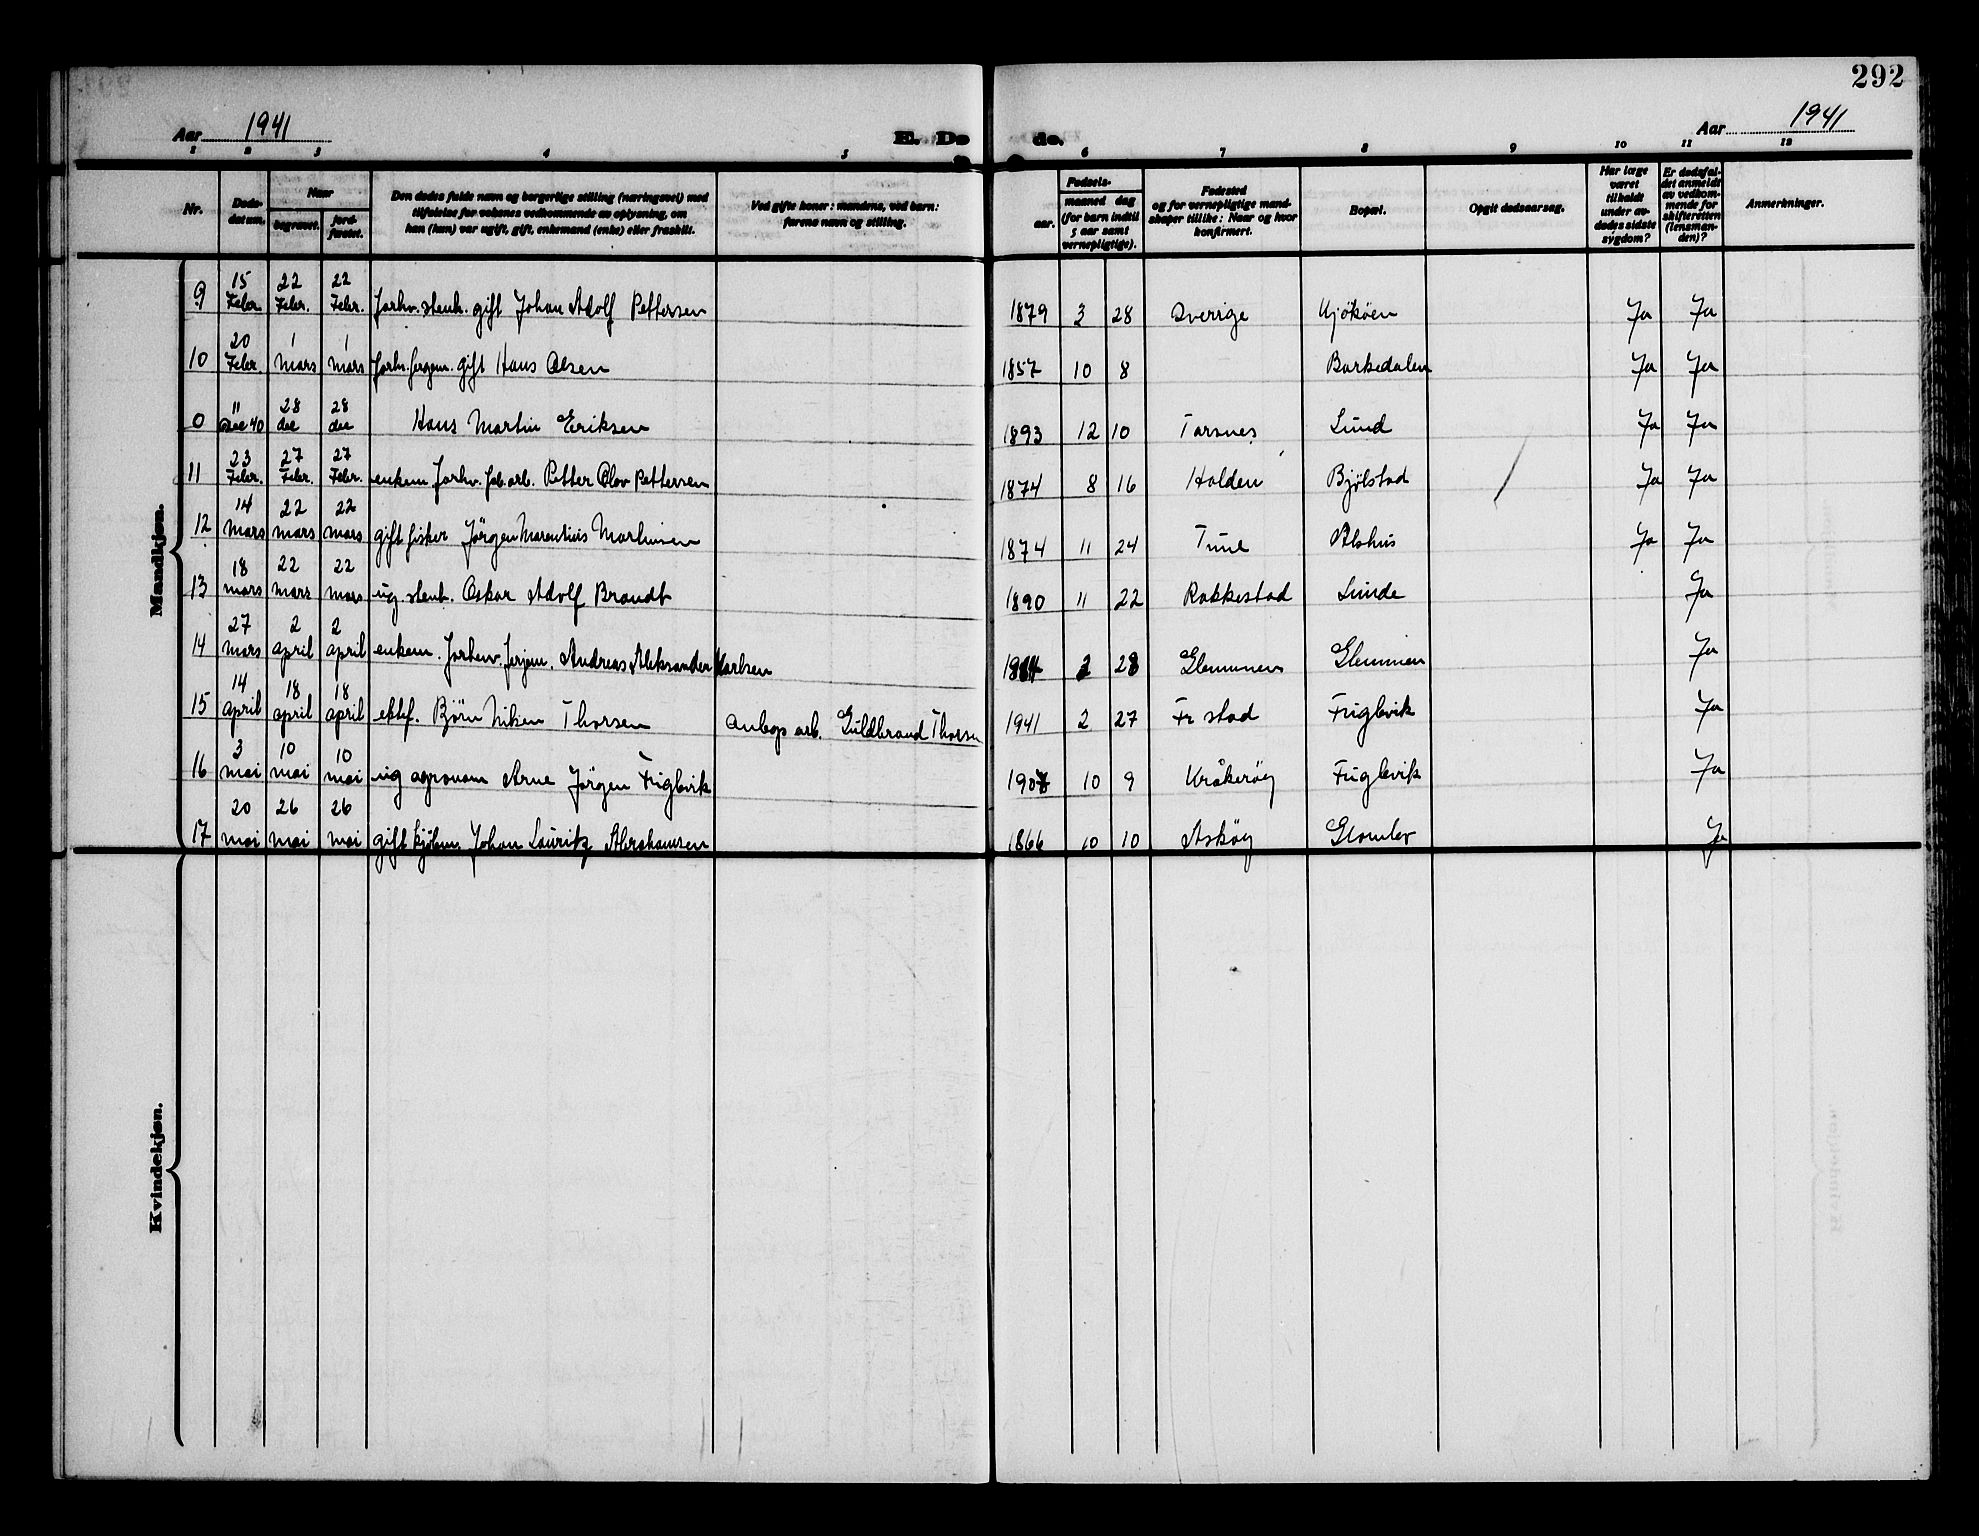 292
Aar 1941 E. Dø de. Aar 1941
1 2 3 4 5 6 7 8 9 10 11 12
Nr.
Døds-datum.
Naar
begravet.
jord-fæstet.
Den dødes fulde navn og borgerlige stilling (næringsvei) med
tilføielse for voksnes vedkommende av oplysning, om
han (hun) var ugift, gift, enkemand (enke) eller fraskilt.
Ved gifte koner: mandens, ved barn:
farens navn og stilling.
Fødsels-
aar.
maaned dag
(for barn indtil
5 aar samt
vernepligtige).
Fødested
og for vernepligtige mand-
skaper tillike: Naar og hvor
konfirmert.
Bopæl.
Opgit dødsaarsag.
Har læge
været
tilkaldt
under av-
dødes sidste
sygdom?
Er dødsfal-
det anmeldt
av vedkom-
mende for
skifteretten
(lensman-
den)?
Anmerkninger.
Mandkjøn.
9 15 Febr. 22 Febr. 22 Febr. forhv. stenh. gift Johan Adolf Pettersen 1879 3 28 Sverige Kjøkøen Ja Ja
10 20 Febr. 1 mars 1 mars forhv. fergem. gift Hans Olsen 1857 10 8 Barkedalen Ja Ja
0 11 des 40 28 des 28 des Hans Martin Eriksen 1893 12 10 Torsnes Lund Ja Ja
11 23 Febr. 27 Febr. 27 Febr. enkem. forhv. fab. arb. Petter Olov Pettersen 1874 8 16 Halden Bjølstad / Ja Ja
12 14 mars 22 mars 22 mars gift fisker Jørgen Marentius Martinsen 1874 11 24 Tune Alshus Ja Ja
13 18 mars 22 mars 22 mars ug. stenh. Oskar Adolf Brandt 1890 11 22 Rakkestad Lunde Ja
14 27 mars 2 april 2 april enkem. forhenv. ferjem. Andreas Aleksander Karlsen 2 28 Glemmen Glemmen Ja
15 14 april 18 april 18 april ektef. Bjørn Nilsen Thorsen anlegs arb. Guldbrand Thorsen 1941 2 27 Fr stad Fuglevik Ja
16 3 mai 10 mai 10 mai ug agronom Arne Jørgen Fuglevik 1907 10 9 Kråkerøy Fuglevik Ja
17 20 mai 26 mai 26 mai gift kjøbm. Johan Lauritz Abrahamsen 1866 10 10 Askøy Glombo Ja
Kvindekjøn.